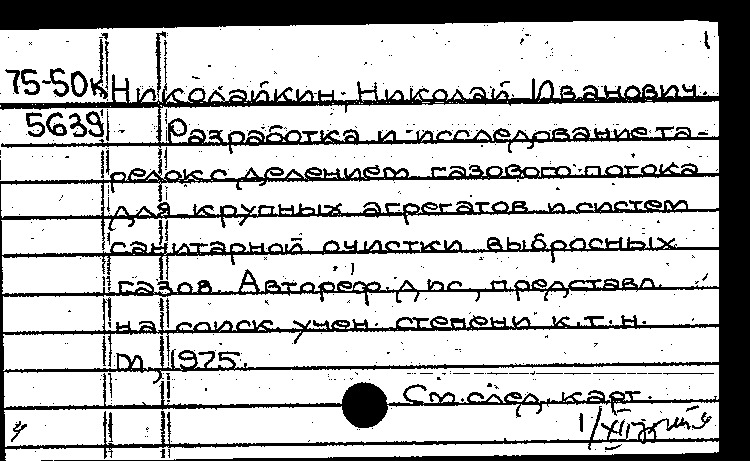 1
75-50к Николайкин, Николай Иванович.
5639 Разработка и исследование та-
релок с делением газового потока
для крупных агрегатов и систем
санитарной очистки выбросных
газов. Автореф. дис., представл.
на соиск. учен. степени к.т.н.
М., 1975.
См. след. карт.